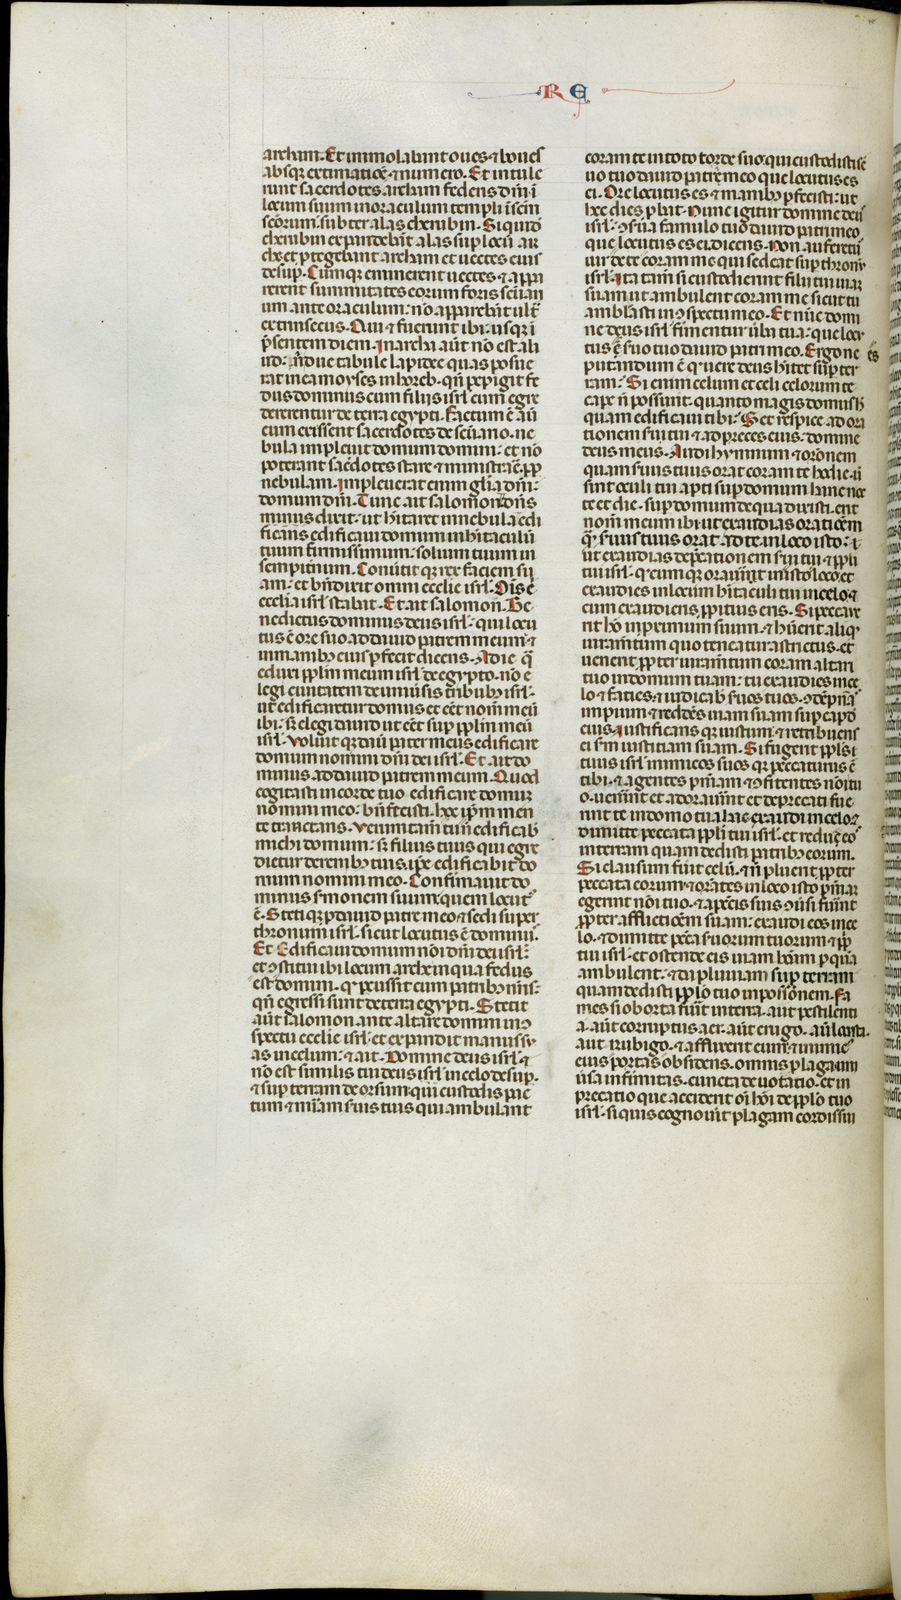 RE
archam. Et immolabant oues ⁊ boues
absq; extimatiõe ⁊ numero. Et intule
runt sacerdotes archam federis dñi ĩ
locum suum in oraculum templi ĩ scm̃
scorum. subter alas cherubin. Siquid̃
cherubin expandebãt alas sup locũ ar
che et ptegebant archam et uectes eius
desup. Cumq; eminerent uectes ⁊ appa
rerent summitates eorum foris sc̃uari
um ante oraculum: nõ apparebãt ultͣ
extrinsecus. Qui ⁊ fuerunt ibi: usq; ĩ
p̃sentem diem. In archa aũt nõ est ali
ud: n̄ due tabule lapidee quas posue
rat in ea moyses in horeb. qñ pepigit fe
dus dominus cum filiis isrl̃ cum egre
derentur de terra egypti. Factum ẽ aũ
cum exissent sacerdotes de sc̃uario. ne
bula impleuit domum domini: et nõ
poterant sac̃dotes stare ⁊ ministrar̃ ꝓp
nebulam. Impleuerat enim gl̃ia dñi:
domum dñi. Tunc ait salomon dñs
minus dixit. ut hitaret in nebula edi
ficans edificaui domum in hitaculũ
tuum firmissimum. solium tuum in
sempitnum. Conũtit q; rex faciem su
am: et bñdixit omni ecclie isrl̃. Ois ẽ
ecclia isrl̃ stabat. Et ait salomon. Be
nedictus dominus deus isrl̃. qui locu
tus ẽ ore suo ad dauid patrem meum ⁊
in manib; eius pfecit dicens. A die q̃
eduxi pplm̃ meum isrl̃ de egypto. nõ e
legi ciuitatem de uniũsis tribub; isrl̃.
ut edificaretur domus et eẽt nom̃ meũ
ibi: s; elegi dauid ut eẽt sup pplm̃ meũ
isrl̃. Voluit q; dauid pater meus edificare
domum nomini dñi dei isrl̃. Et ait do
minus ad dauid patrem meum. Quod
cogitasti in corde tuo edificare domũ
nomini meo. bñ fecisti. hec ip̃m men
te tractans. Verum tam̃ tu nõ edificab̃
michi domum: s; filius tuus qui egre
dietur de renib; tuis. ip̃e edificabit do
mum nomini meo. Confirmauit do
minus smonem suum quem locut᷒
ẽ. Steti q; p dauid patre meo ⁊ sedi super
thronum isrl̃. sicut locutus ẽ dominus.
Et edificaui domum nõi dñi dei isrl̃.
et ꝯstitui ibi locum arche in qua fedus
est domini. q; pcussit cum patrib; nr̃is.
qñ egressi sunt de terra egypti. Stetit
aũt salomon ante altare domini in ꝯ
spectu ecclie isrl̃. et expandit manus su
as in celum. ⁊ ait. Domine deus isrl̃ ⁊
nõ est similis tui deus isrl̃ in celo desup.
⁊ sup terram deorsum. qui custodis pac
tum ⁊ mĩam suis tuis qui ambulant
coram te in toto corde suo. qui custodisti sẽ
uo tuo dauid patri meo que locutus es
ei. Ore locutus es ⁊ manib; pfecisti: ut
hec dies pbat. Nunc igitur domine deus
isrl̃. ꝯsũa famulo tuo dauid patri meo
que locutus es ei dicens. Non auferetur
uir de te coram me qui sedeat sup thronũ
isrl̃. Ita tam̃ si custodierint filii tui uiam
suam ut ambulent coram me sicut tu
amb̃lasti in ꝯspectu meo. Et nũc domi
ne deus isrl̃ firmentur ũba tua: que locu
tus ẽ suo tuo dauid patri meo. Ergo ne es
putandum ẽ q; uere deus hitet sup ter
ram. Si enim celum et celi celorum te
cape ñ possunt. quanto magis domus h̃
quam edificaui tibi. Set respice ad ora
tionem sui tui ⁊ ad preces eius: domine
deus meus. Audi hymnum ⁊ orõnem
quam suus tuus orat coram te hodie. ũ
sint oculi tui apti sup domum hanc noc
te et die. sup domum de qua dixisti. erit
nom̃ meum ibi. ut exaudias oratiõem
q̃ suus tuus orat ad te in loco isto. ⁊
ut exaudias dep̃cationem sui tui ⁊ ppli
tui isrl̃. q̃cumque orauĩnt in isto loco. et
exaudies in locum hitaculi tui in celo. ⁊
cum exaudieris ppitius eris. Si peccaue
rit hõ in primum suum. ⁊ hũerit aliq;
iuram̃tum quo teneatur astrictus. et
uenerit ppter iuram̃tum coram altari
tuo in domum tuam: tu exaudies in ce
lo ⁊ facies ⁊ iudicab̃ suos tuos. ꝯdẽpnãs
impium ⁊ reddẽs uiam suam sup capd
eius. Iustificans q; iustum. ⁊ retribuens
ei sm̃ iustitiam suam. Si fugerit ppls̃
tuus isrl̃ inimicos suos q; peccaturus ẽ
tibi. ⁊ agentes pñiam ⁊ ꝯfitentes nõi tu
o. uenerint et adorauĩnt et deprecati fue
rint te in domo tua hac. exaudi in celo. ⁊
dimitte peccata ppli tui isrl̃. et reduc eos
in terram quam dedisti patrib; eorum.
Si clausum fuerit celũ. ⁊ ñ pluerit ppter
peccata eorum ⁊ orãtes in loco isto pñiam
egerint nõi tuo. ⁊ a pcc̃is suis ꝯũsi fũint
ppter afflictiõem suam: exaudi eos in ce
lo. ⁊ dimitte pcc̃a suorum tuorum ⁊ pp̃
tui isrl̃. et ostende eis uiam bonam p quã
ambulent. ⁊ da pluuiam sup terram
quam dedisti pplo tuo in possionem. Fa
mes si oborta fũit in terra. aut pestilenti
a. aũt corruptus aer. aut erugo. aũ locusta.
aut rubigo. ⁊ afflixerit eum ⁊ inimic᷒
eius portas obsidens. omnis plaga uni
ũsa infirmitas. cuncta deuotatio. et in
precatio que acciderit oĩ hõi de pplo tuo
isrl̃. siquis cognouit plagam cordis sui